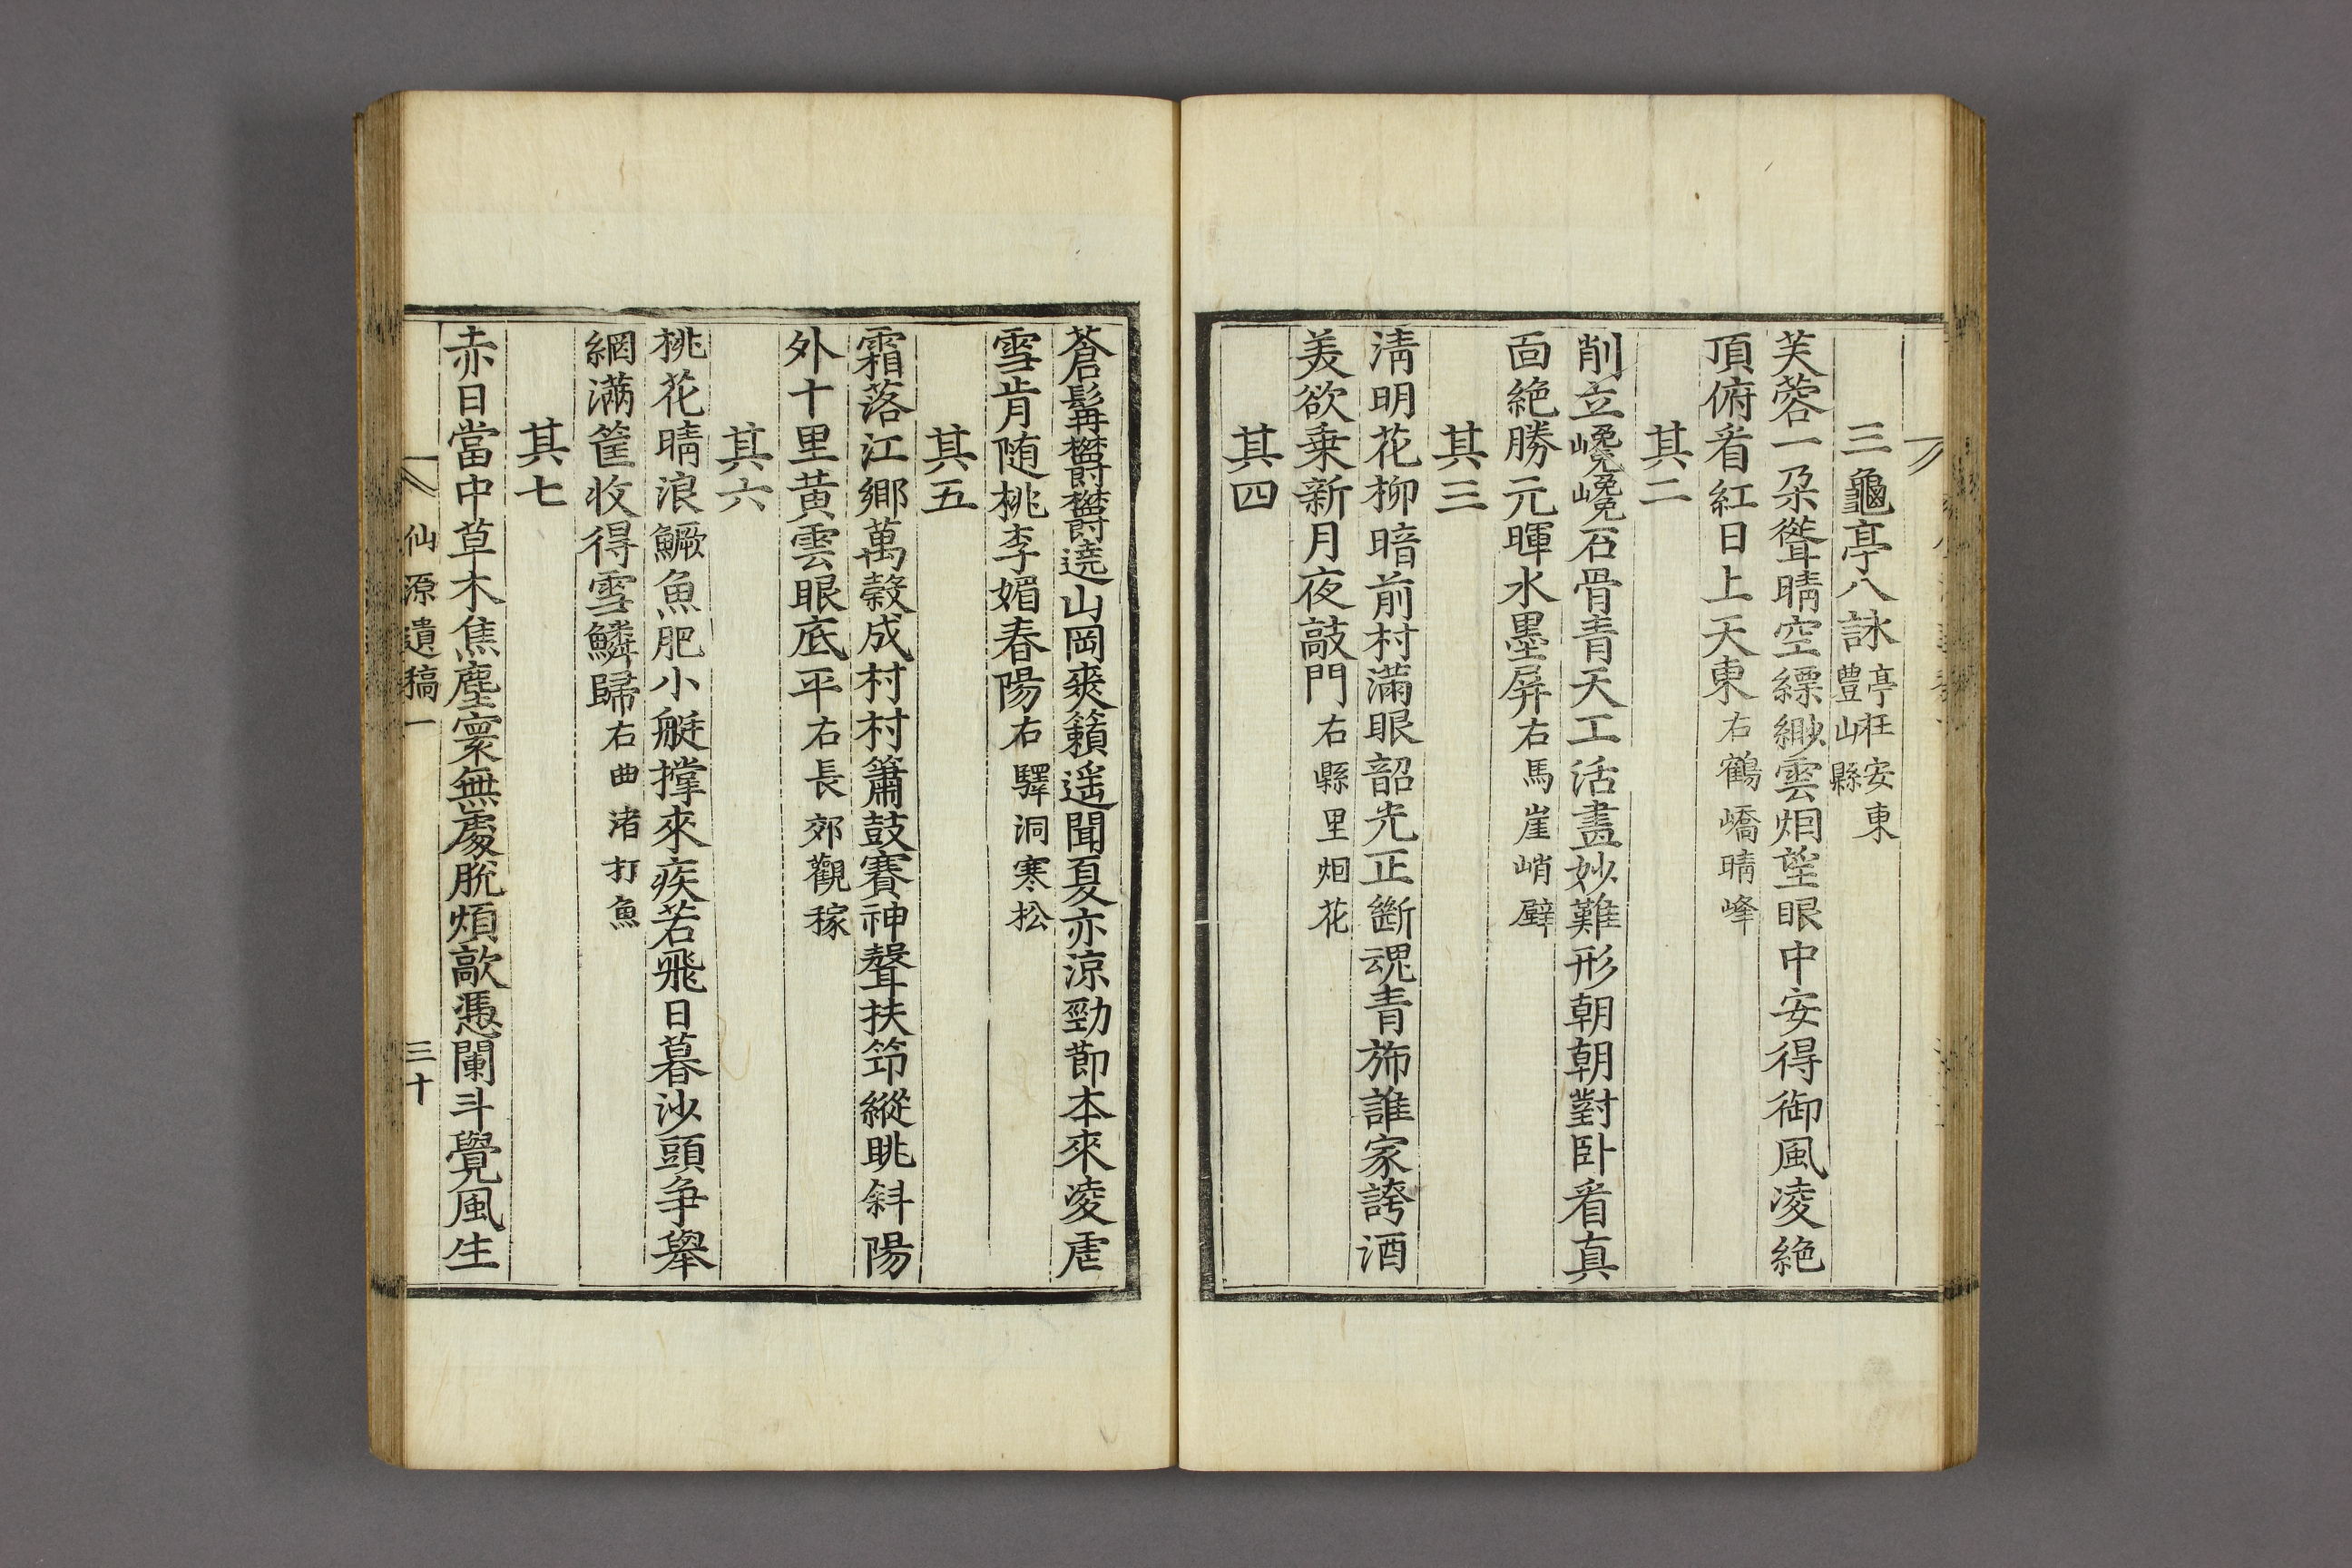 三龜亭八詠亭在安東豊山縣
芙蓉一朶聳晴空縹緲雲烟望眼中安得御風凌絶
頂俯看紅日上天東右鶴嶠晴峰
其二
削立巉巉石骨青天工活畫妙難形朝朝對卧看真
面絶勝元暉水墨屏右馬崖峭壁
其三
淸明花柳暗前村滿眼韶光正斷魂青斾誰家誇酒
美欲乗新月夜敲門右縣里烟花
其四
蒼髯欝欝遶山岡爽籟遥聞夏亦涼勁節本來凌虐
雪肯随桃李媚春陽右驛洞寒松
其五
霜落江鄉萬穀成村村簫鼓賽神聲扶笻縱眺斜陽
外十里黃雲眼底平右長郊觀稼
其六
桃花晴浪鱖魚肥小艇撑來疾若飛日暮沙頭争舉
網滿筐收得雪鱗歸右曲渚打魚
其七
赤日當中草木焦塵寰無處脫煩歊憑闌斗覺風生
仙源遺稿一
三十